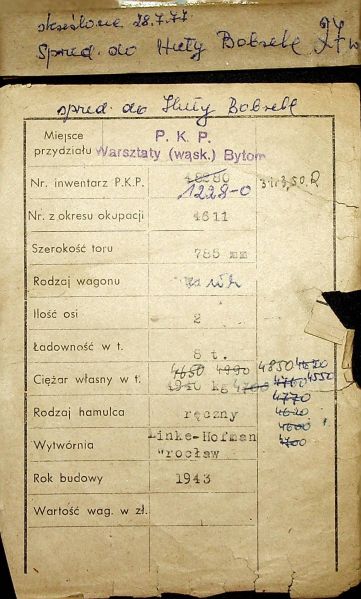 skreślono 28.7.77
Spred. do Huty Bobrek 27w
spred. do Huty Bobrek
Miejsce przydziału P. K. P. Warsztaty (wąsk.) Bytom
Nr. inwentarz P.K.P. 48280 1228-0
Nr. z okresu okupacji 4611
Szerokość toru 785 mm
Rodzaj wagonu
Ilość osi 2
Ładowność w t. 8 t.
4650 4850
Ciężar własny w t. kg 4700 4760 4550
4770
4620
4600
4700
Rodzaj hamulca ręczny
Wytwórnia Linke-Hofman Wrocław
Rok budowy 1943
Wartość wag. w zł.